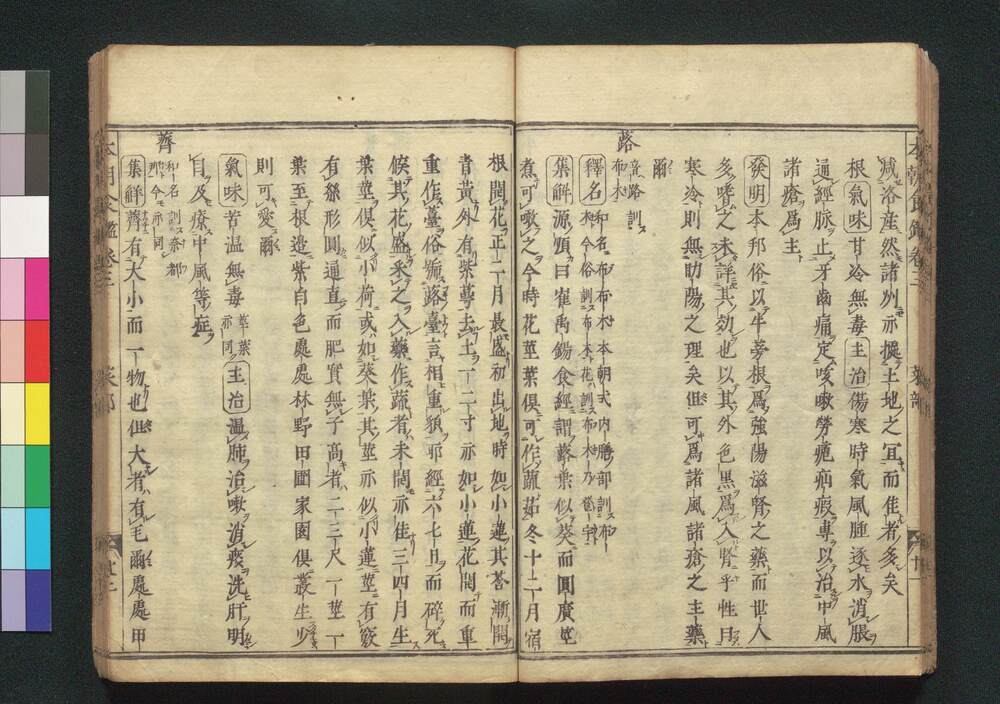 減洛産然諸州亦撰土地之宜而佳者多矣
根氣味甘冷無毒主治傷寒時氣風腫逐水消脹
通經脉止牙齒痛定咳嗽勞瘧疝瘕專以治中風
諸瘡爲主
發明本邦俗以牛蒡根爲強陽滋腎之藥而世人
多嗜之未詳其効也以其外色黒爲入腎乎性甘
寒冷則無助陽之理矣但可爲諸風諸瘡之主藥
爾
蕗
音路訓布木
釋名和名布布木本朝式内膳部訓布布木今俗訓布木花訓布木乃
集解源順曰崔禹錫食經謂蕗葉似葵而圓廣莖
煮可噉之今時花莖葉倶可作蔬茹冬十二月宿
根開花正二月最盛初出地時如小蓮其苔漸開
青黄外有紫萼去土一二寸亦如小蓮花開而重
重作臺俗號蕗臺言相重貌耶經六七日而碎死
候其花盛釆之入藥作蔬者未開亦佳三四月生
葉莖倶似小荷或如葵葉其莖亦似小蓮莖有竅
有絲形圓通直而肥實無子高者二三尺一莖一
葉至根造紫白色處處林野田圃家園倶叢生少
則可愛爾
氣味苦温無毒莖葉亦同主治温肺治嗽消痰洗肝明
目及療中風等症
薺
和名訓奈都那今亦同
集解薺有大小而一物也但大者有毛爾處處甲